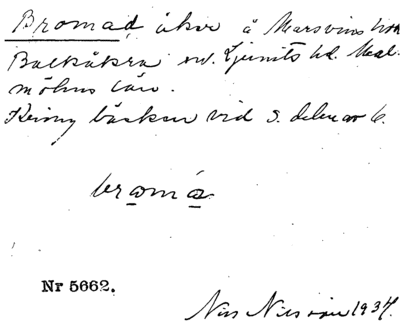 Bromad, åker å Marsvinsholm
Balkåkra sn. Ljunits hd. Mal-
möhus län.
Kring bäcken vid s. delen av 6.
bromạ́
Nr 5662.
Nils Nilsson 1934.